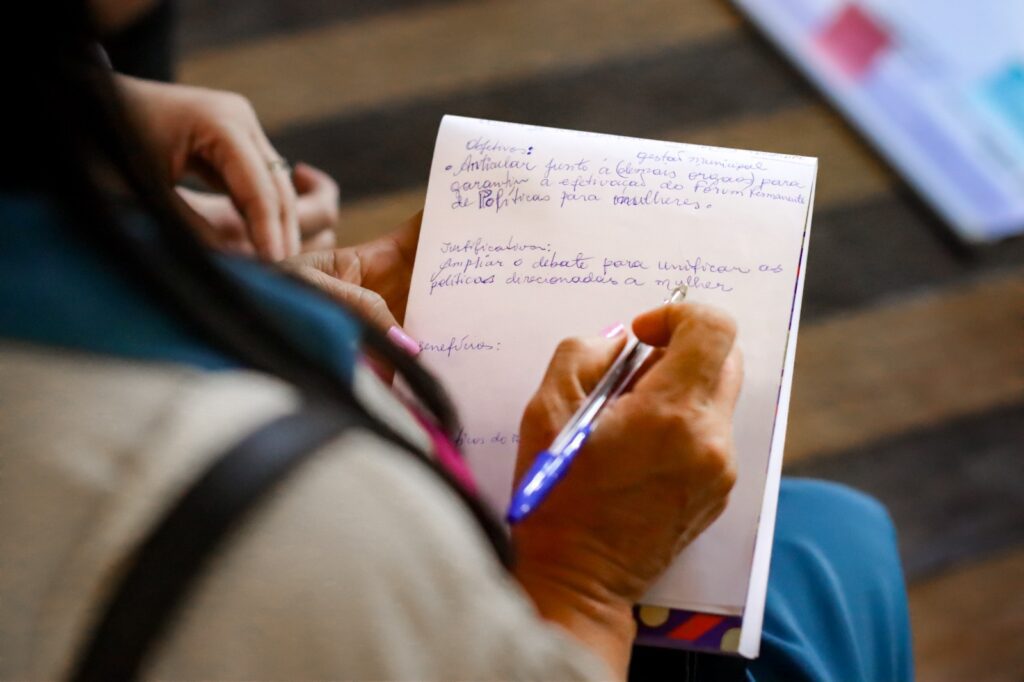 Objetivos:
gestão municipal
• Articular junto à (demais orgãos) para
garantir a efetivação do Fórum Permanente
de Políticas para mulheres.
Justificativa:
Ampliar o debate para unificar as
políticas direcionadas a mulher
Benefícios: